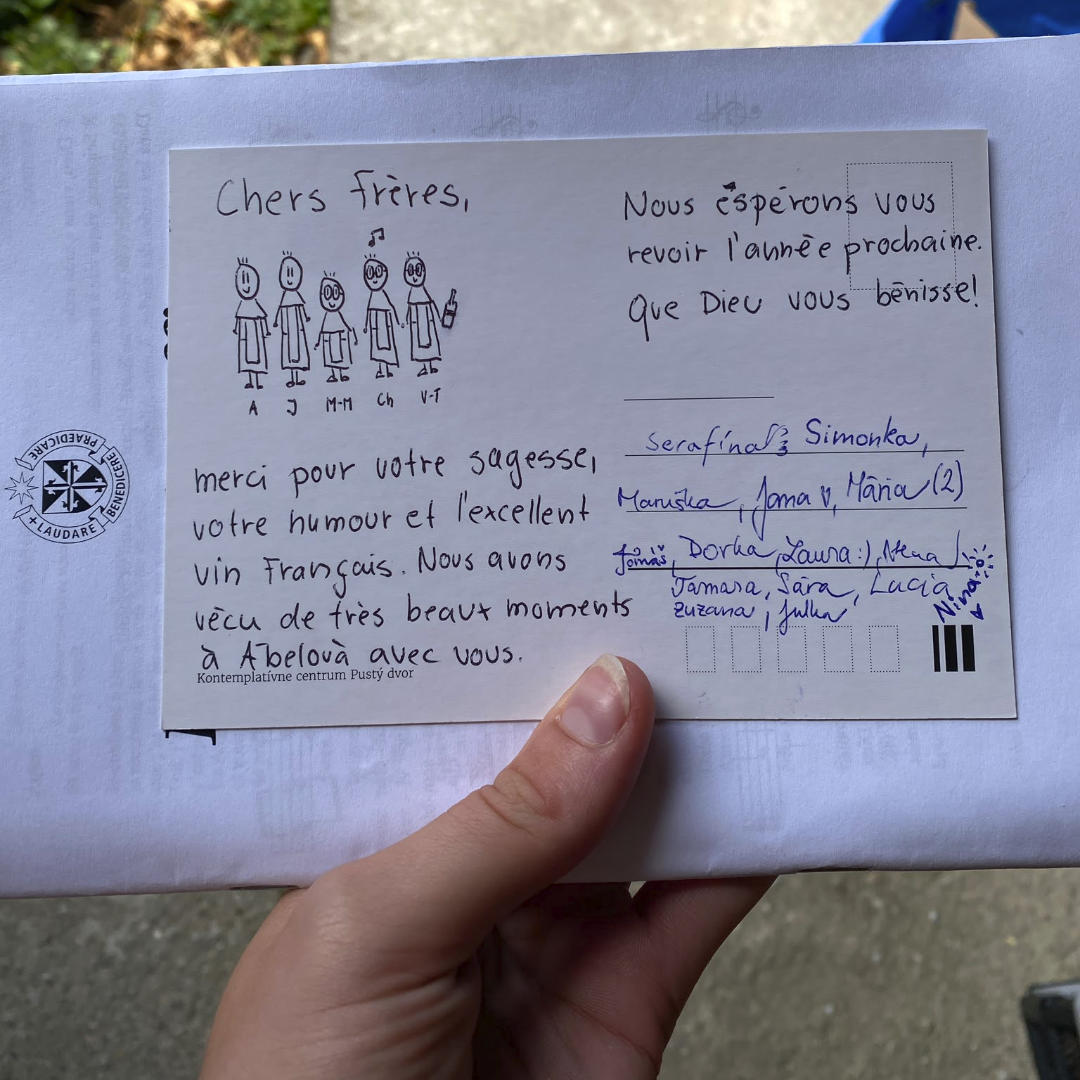 Chers frères,
A J M-M Ch V-T
merci pour votre sagesse,
votre humour et l'excellent
vin Français. Nous avons
vécu de très beaux moments
à Abelovà avec vous.
Kontemplatívne centrum Pustý dvor
Nous éspérons vous
revoir l'année prochaine.
Que Dieu vous bénisse!
Serafína Simonka,
Maruška, Jana, Mária (2)
Tomáš, Dorka, Laura :),
Tamara, Sára, Lucia
Zuzana, Julka
Nina
LAUDARE BENEDICERE PRAEDICARE